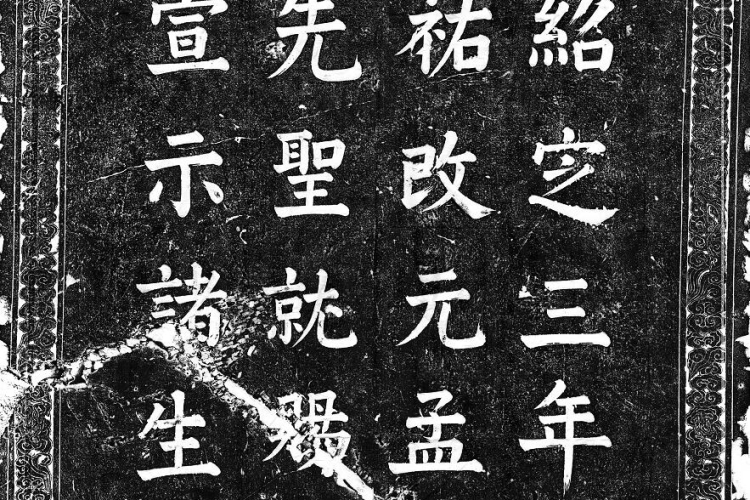 紹定三年
祐改元孟
先聖就賜
宣示諸生